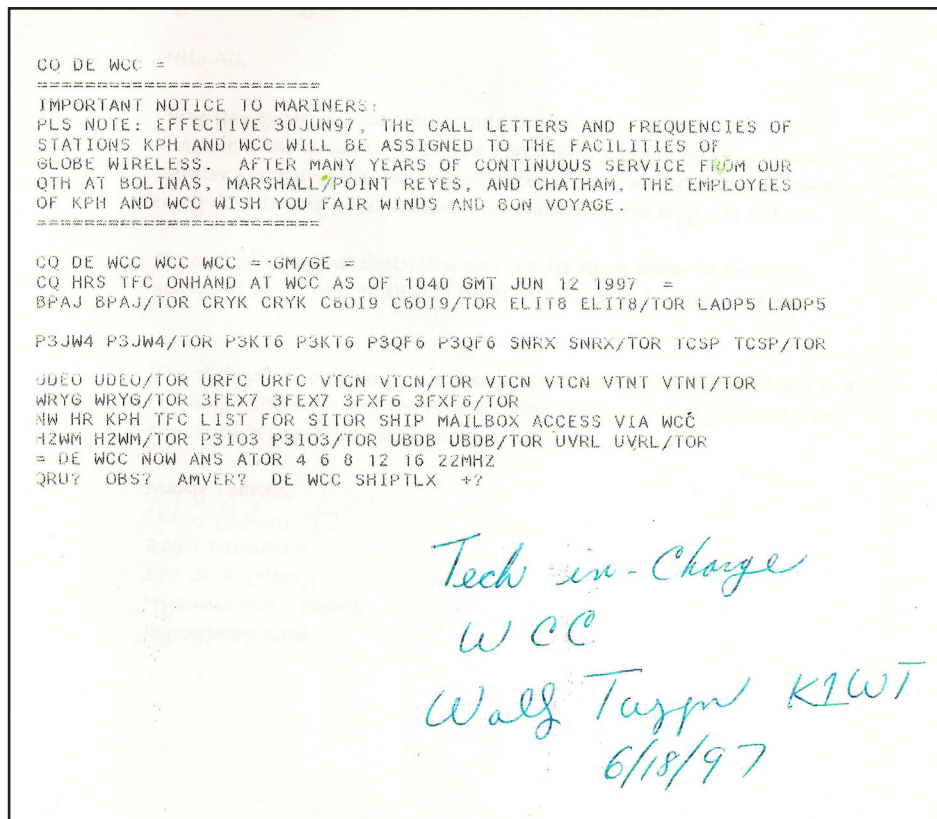 CQ DE WCC =
========================
IMPORTANT NOTICE TO MARINERS:
PLS NOTE: EFFECTIVE 30JUN97, THE CALL LETTERS AND FREQUENCIES OF
STATIONS KPH AND WCC WILL BE ASSIGNED TO THE FACILITIES OF
GLOBE WIRELESS. AFTER MANY YEARS OF CONTINUOUS SERVICE FROM OUR
QTH AT BOLINAS, MARSHALL/POINT REYES, AND CHATHAM, THE EMPLOYEES
OF KPH AND WCC WISH YOU FAIR WINDS AND BON VOYAGE.
========================
CQ DE WCC WCC WCC = GM/GE =
CQ HRS TFC ONHAND AT WCC AS OF 1040 GMT JUN 12 1997 =
BPAJ BPAJ/TOR CRYK CRYK C6OI9 C6OI9/TOR ELIT8 ELIT8/TOR LADP5 LADP5
P3JW4 P3JW4/TOR P3KT6 P3KT6 P3QF6 P3QF6 SNRX SNRX/TOR TCSP TCSP/TOR
UDEO UDEO/TOR URFC URFC VTCN VTCN/TOR VTCN VTCN VTNT VTNT/TOR
WRYG WRYG/TOR 3FEX7 3FEX7 3FXF6 3FXF6/TOR
NW HR KPH TFC LIST FOR SITOR SHIP MAILBOX ACCESS VIA WCC
H2WM H2WM/TOR P3IO3 P3IO3/TOR UBDB UBDB/TOR UVRL UVRL/TOR
= DE WCC NOW ANS ATOR 4 6 8 12 16 22MHZ
QRU? OBS? AMVER? DE WCC SHIPTLX +?
Tech in-Charge
WCC
K1WT
6/18/97